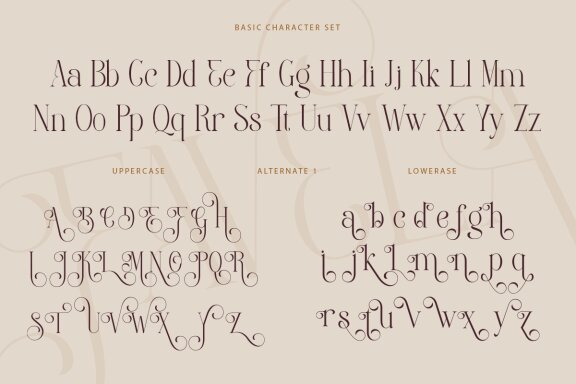 BASIC CHARACTER SET
Aa Bb Cc Dd Ee Ff Gg Hh Ii Jj Kk Ll Mm
Nn Oo Pp Qq Rr Ss Tt Uu Vv Ww Xx Yy Zz
UPPERCASE
ALTERNATE 1
LOWERASE
A B C D E F G H
I J K L M N O P Q R
S T U V W X Y Z
a b c d e f g h
i j k l m n o p q
r s t u v w x y z